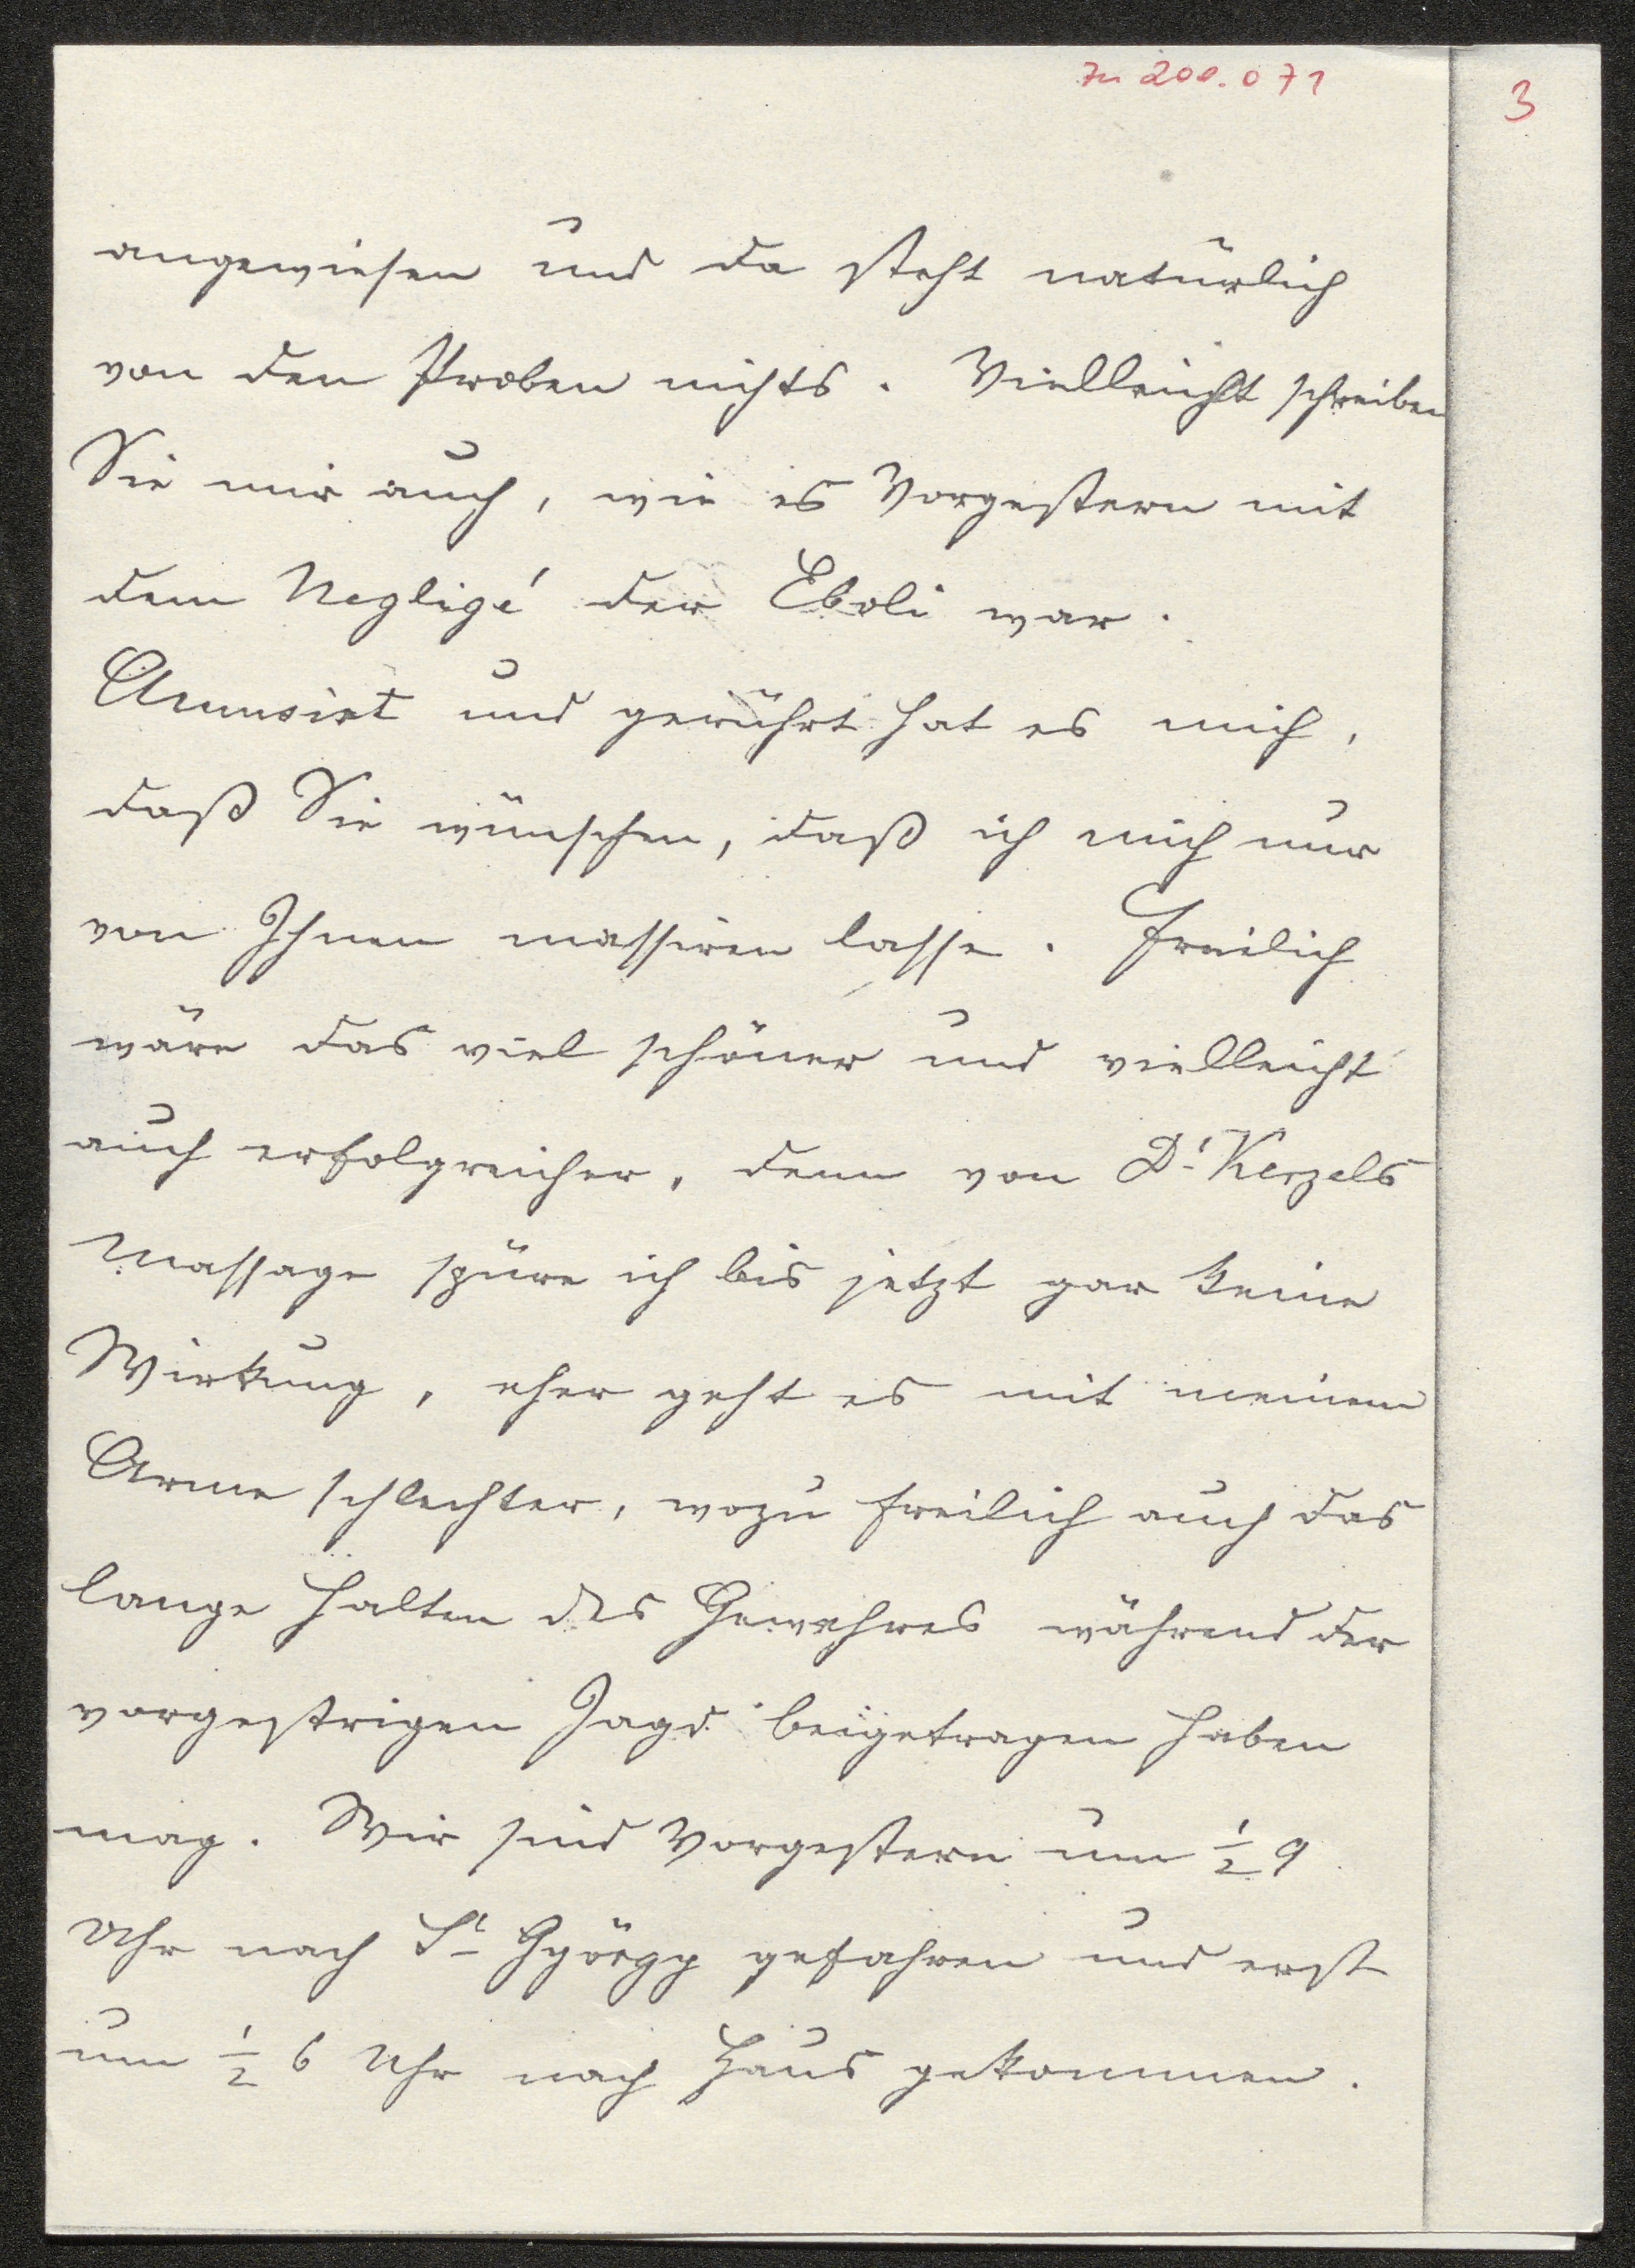 zu 200.071
3
angewiesen und da steht natürlich
von den Proben nichts. Vielleicht schreiben
Sie mir auch, wie es Vorgestern mit
dem Negligé der Eboli war.
Amusirt und gerührt hat es mich,
daß Sie wünschen, daß ich mich nur
von Ihnen massiren lasse. Freilich
wäre das viel schöner und vielleicht
auch erfolgreicher, denn von Dr Kerzels
Massage spüre ich bis jetzt gar keine
Wirkung, eher geht es mit meinem
Arme schlechter, wozu freilich auch das
lange Halten des Gewehres während der
vorgestrigen Jagd beigetragen haben
mag. Wir sind Vorgestern um ½ 9
Uhr nach St György gefahren und erst
um ½ 6 Uhr nach Haus gekommen.